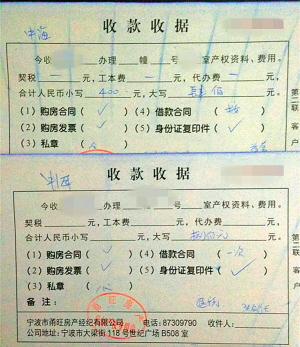 中海
收款收据
今收 办理 幢 号 室产权资料、费用。
契税 一 元,工本费 一 元,代办费 一 元,
合计人民币小写 400 元,大写 肆佰
(1)购房合同( ✓ ) (4)借款合同(
(2)购房发票( ✓ ) (5)身份证复印件( ✓ )
(3)私章(
第二联
收款收据
今收 办理 幢 号 室产权资料、费用。
契税 元,工本费 元,代办费 元,
合计人民币小写 元,大写
(1)购房合同( ✓ ) (4)借款合同(
(2)购房发票( ✓ ) (5)身份证复印件( ✓ )
(3)私章(
备 注:
宁波市甬旺房产经纪有限公司 电话:87309790 收件人:
公司地址:宁波市大梁街118号世纪广场B508室
第二联 客